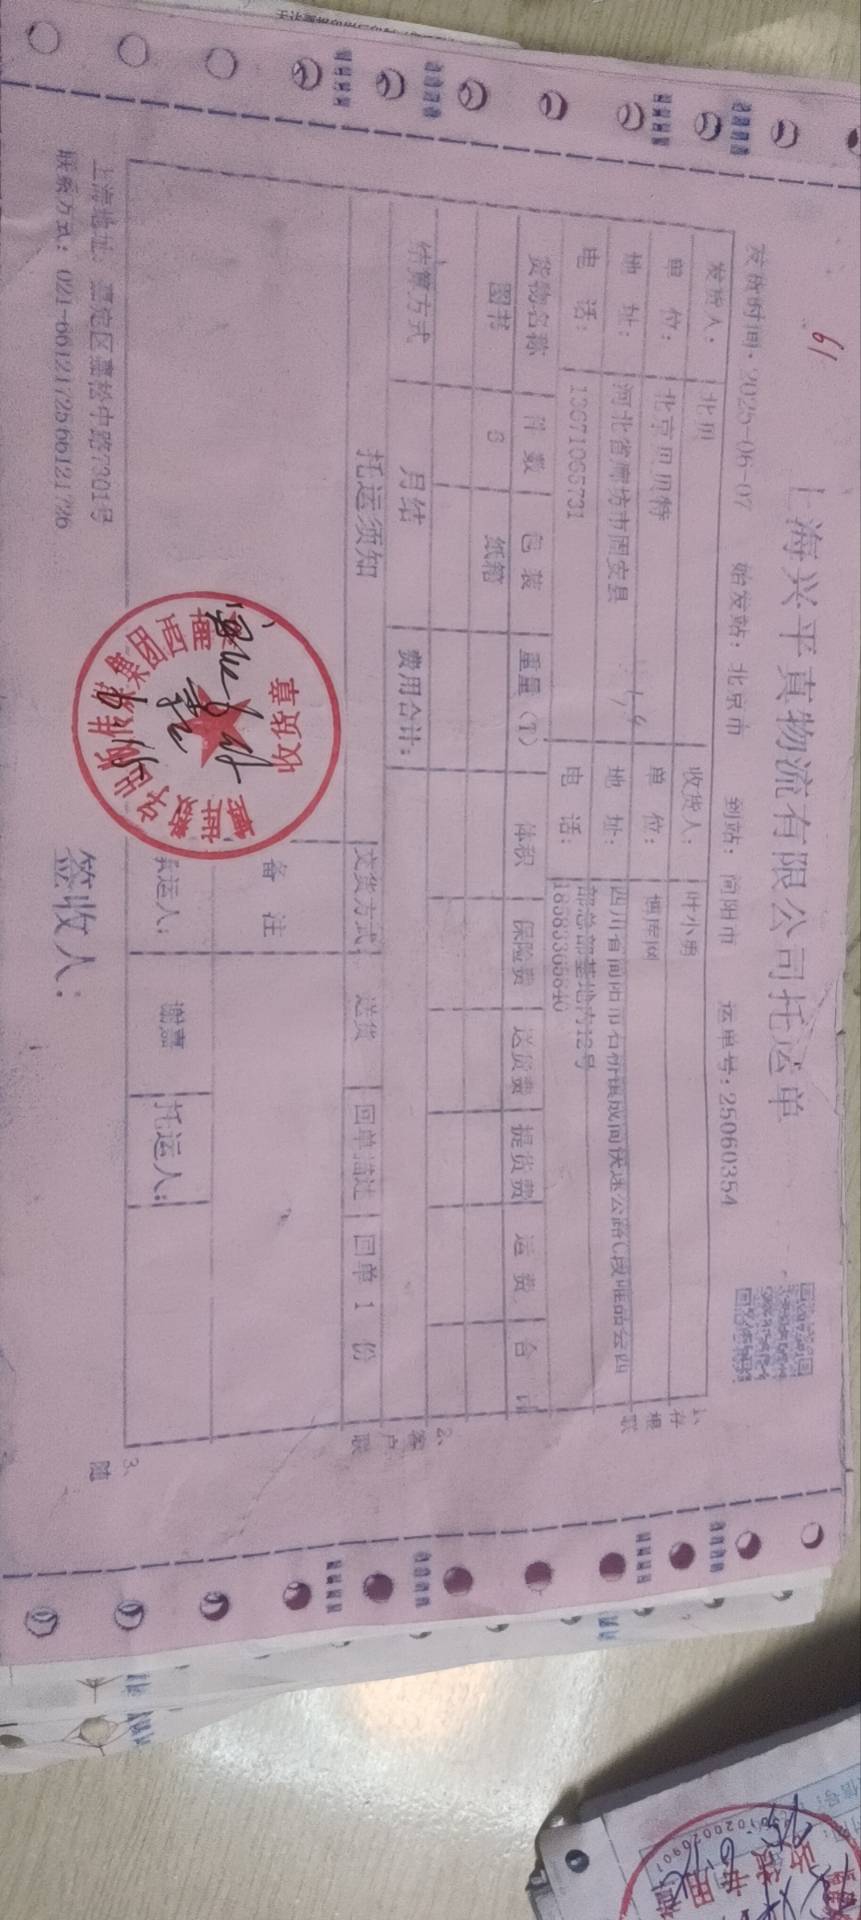 19
上海兴平真物流有限公司托运单
发货时间：2025-06-07 始发站：北京市 到站：简阳市 运单号：25060354
发货人： 北川 收货人： 叶小勇
单 位： 北京贝贝特 单 位：
地 址： 河北省廊坊市固安县 地 址： 四川省简阳市石桥镇成简快速公路C段唯品会西部总部基地内12号
电 话： 13671065731 电 话： 18583365840
货物名称 件 数 包 装 重量（T） 体积 保险费 送货费 提货费 运 费 合 计
图书 6 纸箱
结算方式 月结 费用合计：
托运须知 交货方式： 送货 回单描述 回单 1 份
备 注
承运人： 谢嘉 托运人：
上海地址：嘉定区嘉松中路7301号
联系方式：021-66121725 66121726
签收人：
收货章
1、存根联
2、客户联
3、随